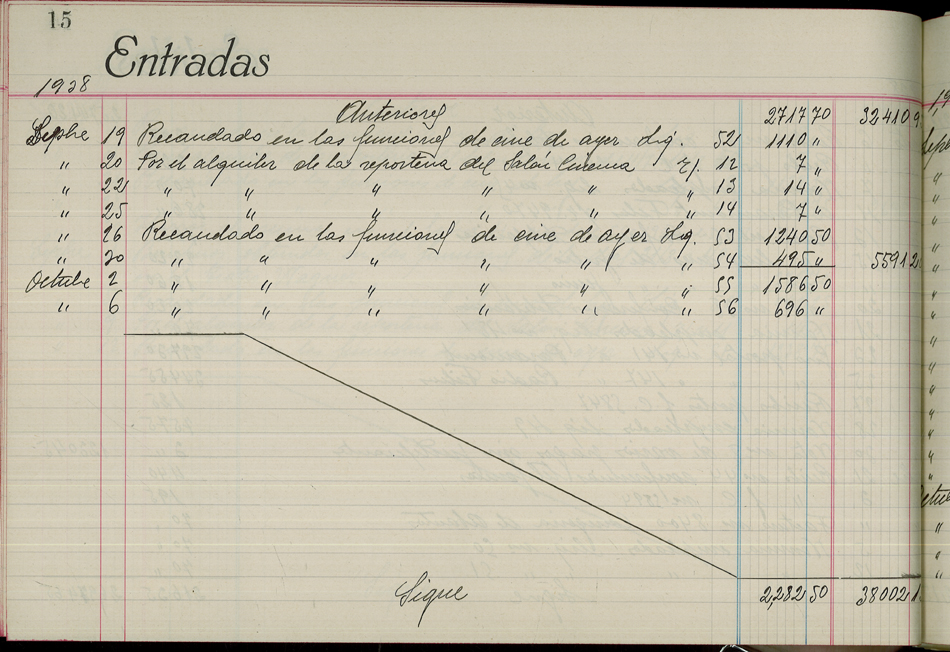 15
Entradas
1928
Anteriores 2717 70 32410 9
Sepbre 19 Recaudado en las funciones de cine de ayer Liq. 52 1110 "
" 20 Por el alquiler de la reposteria del Salón Cinema r/. 12 7 "
" 22 " " " " " " 13 14 "
" 25 " " " " " " 14 7 "
" 26 Recaudado en las funciones de cine de ayer Liq. 53 1240 50
" 30 " " " " " " 54 495 " 5591 2
Octubre 2 " " " " " " 55 1586 50
" 6 " " " " " " 56 696 "
Sigue 2,282 50 38002 1